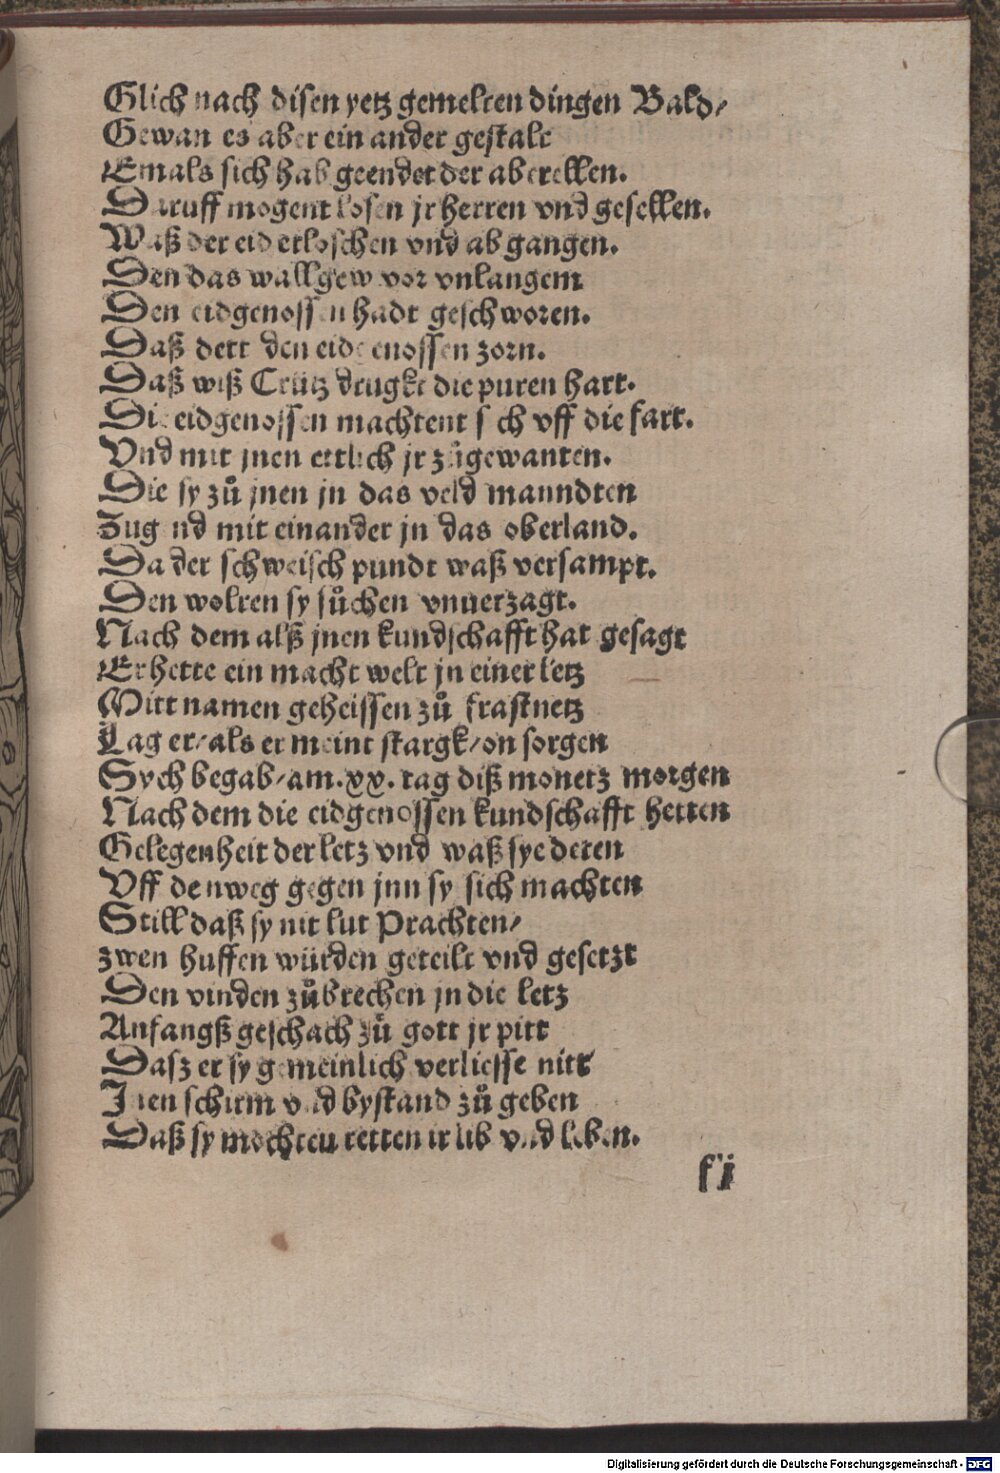 Glich nach disen yetz gemelten dingen Bald/
Gewan es aber ein ander gestalt
Emals sich hab geendet der aberellen.
Daruff mogent losen jr herren vnd gesellen.
Waß der eid erloschen vnd ab gangen.
Den das wallgew vor vnlangem
Den eidgenossen hadt geschworen.
Daß dett den eidgenossen zorn.
Daß wiß Crütz drugkt die puren hart.
Die eidgenossen machtent sich vff die fart.
Vnd mit jnen ettlich jr zůgewanten.
Die sy zů jnen jn das veld manndten
Zugend mit einander jn das oberland.
Da der schweisch pundt waß versampt.
Den wolten sy sůchen vnuerzagt.
Nach dem alß jnen kundschafft hat gesagt
Er hette ein macht welt jn einer letz
Mitt namen geheissen zů frastnetz
Lag er/als er meint stargk/on sorgen
Sych begab/am.xx.tag diß monetz morgen
Nach dem die eidgenossen kundschafft hetten
Gelegenheit der letz vnd waß sye deten
Vff den weg gegen jnn sy sich machten
Still daß sy nit lut Prachten/
zwen huffen würden geteilt vnd gesetzt
Den vinden zůbrechen jn die letz
Anfangß geschach zů gott jr pitt
Dasz er sy gemeinlich verliesse nitt
Inen schirm vnd bystand zů geben
Daß sy mochten retten ir lib vnd leben.
f ij
Digitalisierung gefördert durch die Deutsche Forschungsgemeinschaft - DFG